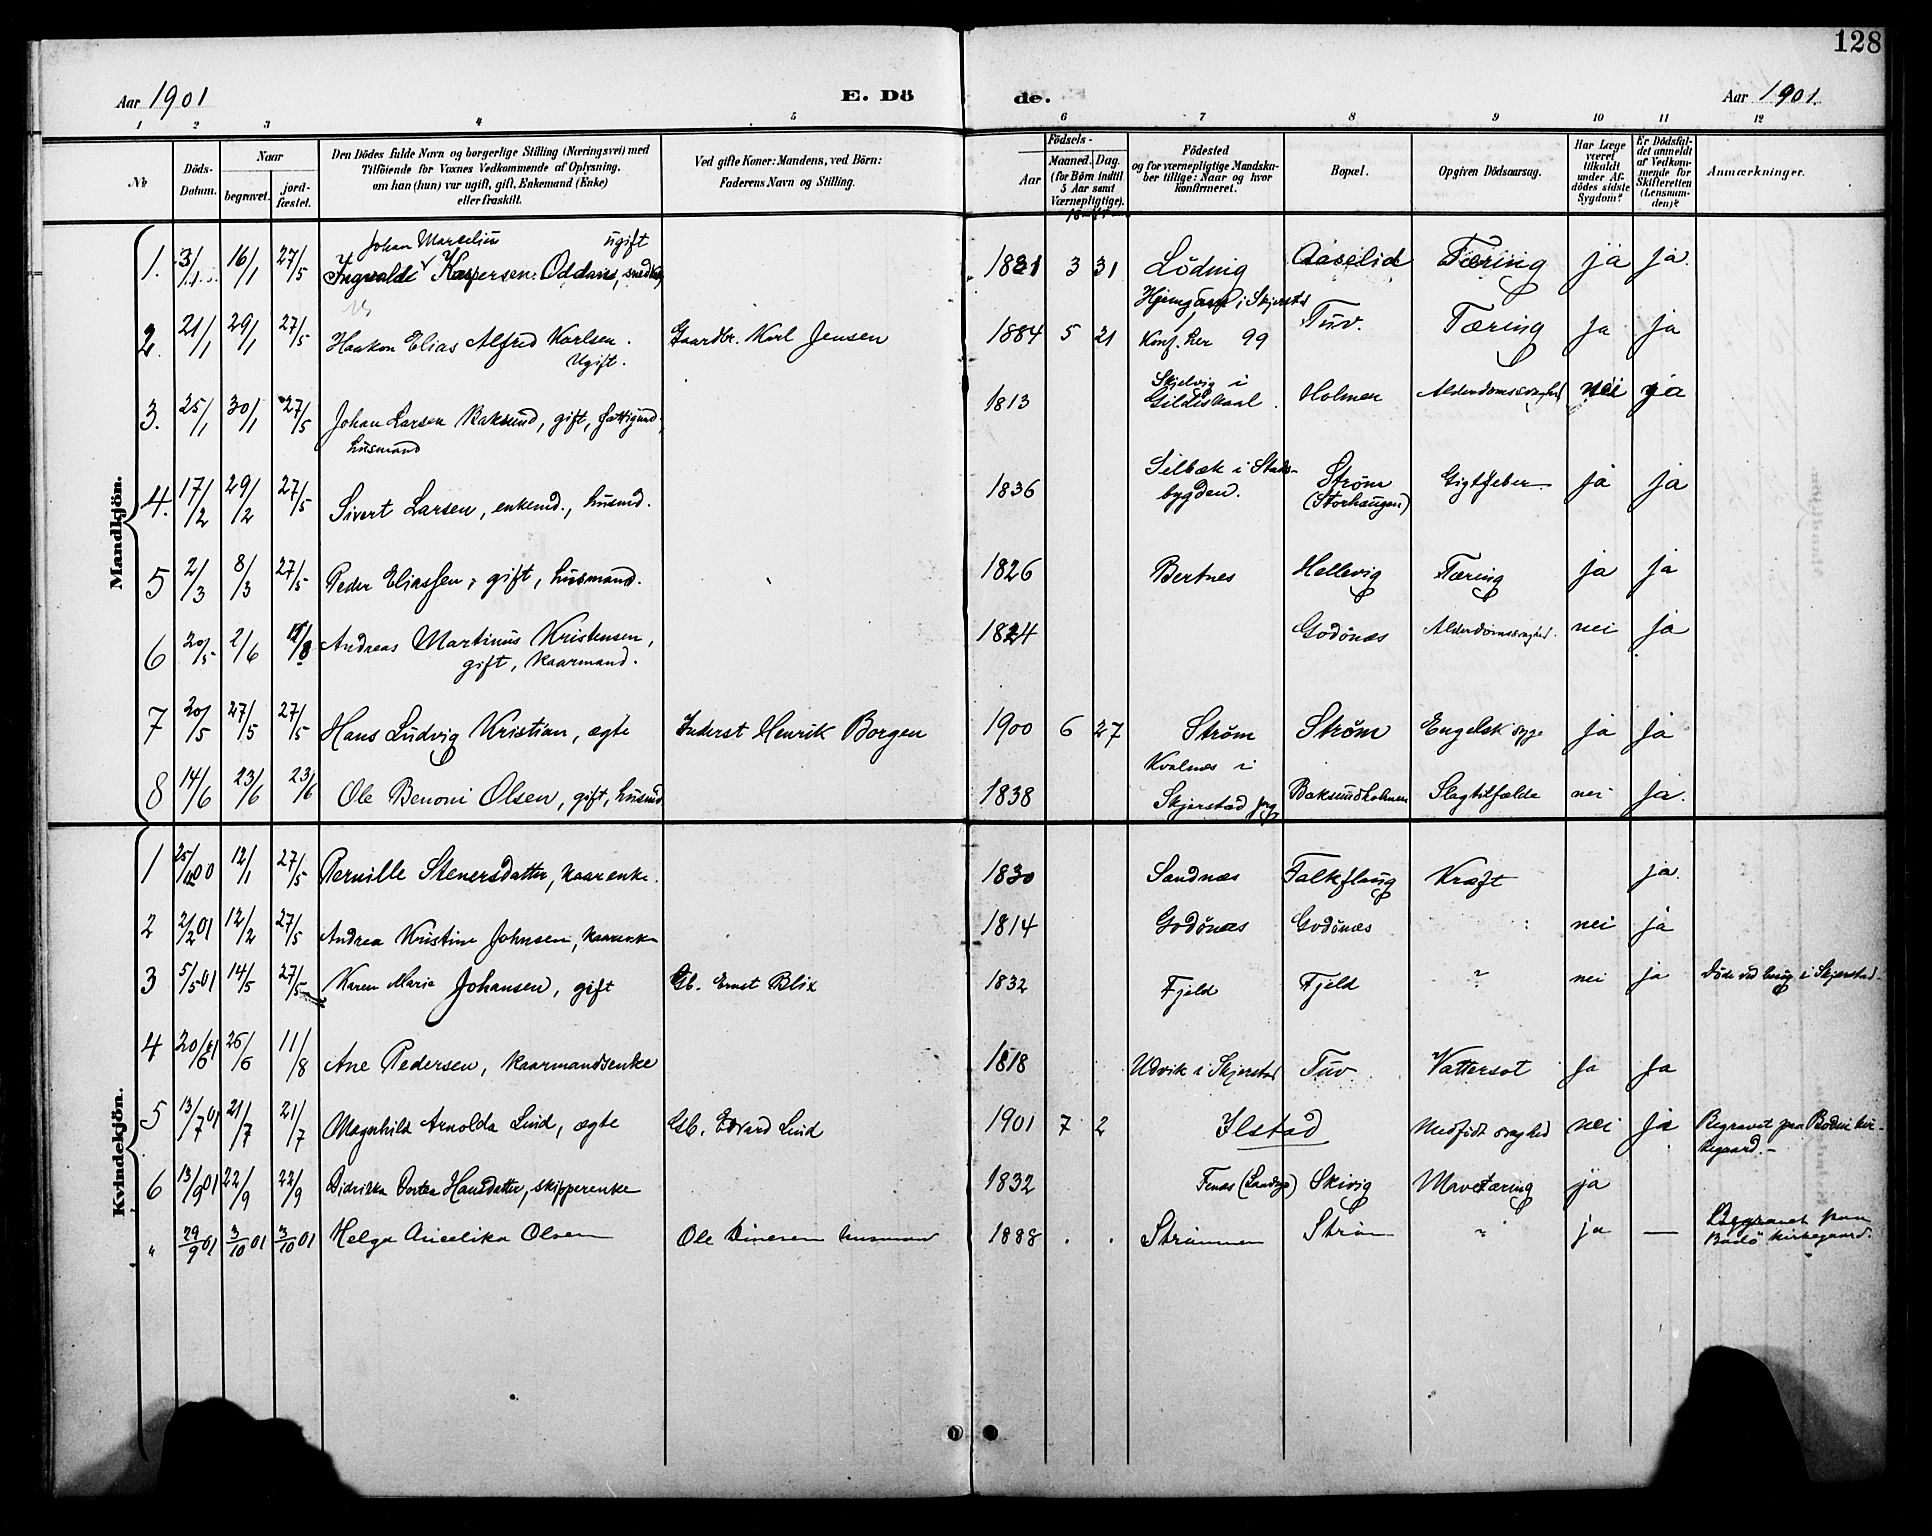 128
Aar 1901
E. Dö
de.
Aar 1901.
1 2 3 4 5 6 7 8 9 10 11 12
No
Döds-Datum.
Naar
begravet.
jord-fæstet.
Den Dödes fulde Navn og borgerlige Stilling (Næringsvei) med
Tilföiende for Voxnes Vedkommende af Oplysning,
om han (hun) var ugift, gift, Enkemand (Enke)
eller fraskilt.
Ved gifte Koner: Mandens, ved Börn:
Faderens Navn og Stilling.
Födsels-
Aar
Maaned. Dag.
(for Börn indtil
5 Aar samt
Værnepligtige).
Födested
og for værnepligtige Mandska-
ber tillige: Naar og hvor
konfirmeret.
Bopæl.
Opgiven Dödsaarsag.
Har Læge
været
tilkaldt
under Af-
dödes sidste
Sygdom?
Er Dödsfal-
det anmeldt
af Vedkom-
mende for
Skifteretten
(Lensman-
den)?
Anmærkninger.
Mandkjön.
Johan Marselius ugift
1. 3/1 16/1 27/5 Ingvald Kaspersen Oddans, 1821 3 31 Löding Aaselid Tæring ja ja.
Hjemgaard i Skjerstad
2. 21/1 29/1 27/5 Haakon Elias Alfred Karlsen. Gaardbr. Karl Jensen 1884 5 21 Konf. her 99 Tuv. Tæring ja ja
Ugift.
Skjelvig i
3. 25/1 30/1 27/5 Johan Larsen Baksund, gift, fattigund., 1813 Gildeskaal. Holmen Alderdomssvaghed nei ja
husmand
4. 17/2 29/2 27/5 Sivert Larsen, enkemd., husmd. 1836 Selbæk i Stads-
bygden. Strøm
(Storhaugen) Gigtfeber ja ja
5 2/3 8/3 27/5 Peder Eliassen, gift, husmand. 1826 Bertnes Hellevig Tæring ja ja
6 20/5 2/6 11/8 Andreas Martinus Kristensen, 1824 Godönæs Alderdomssvaghed. nei ja
gift, kaarmand.
7 20/5 27/5 27/5 Hans Ludvig Kristian, ægte Inderst Henrik Borgen 1900 6 27 Strøm Strøm Engelsk syge ja ja
Kvalnes i
8 14/6 23/6 23/6 Ole Benoni Olsen, gift, husmd 1838 Skjerstad prg. Baksundholmen Slagtilfælde nei ja.
Kvindekjön.
1 25/12 00 12/1 27/5 Pernille Stenersdatter, kaarenke. 1830 Sandnæs Falkflaug Kræft ja.
2 2/2 01 12/2 27/5 Andrea Kristine Johnsen, kaarenke 1814 Godönæs Godönæs nei ja
3 5/5 01 14/5 27/5 Karen Marie Johansen, gift Gb. Ernst Blix 1832 Fjeld Fjeld ? nei ja Döde ved besög i Skjerstad.
4 20/6 01 26/6 11/8 Ane Pedersen, kaarmandsenke 1818 Udvik i Skjerstad Tuv Vattersot ja ja
5 13/7 01 21/7 21/7 Magnhild Arnolda Lind, ægte Gb. Edvard Lind 1901 7 2 Ilstad Medfödt svaghed nei ja Begravet paa Bodin kir-
kegaard.-
6 13/9 01 22/9 22/9 Didrikka Dortea Hansdatter, skipperenke 1832 Fenes (Landego) Skivig Mavetæring ja
" 29/9 01 3/10 01 3/10 01 Helga Angelika Olsen Ole Dinesen husmand 1888 . . Strømmen Strøm " ja — Begravet paa
Bodø Kirkegaard.